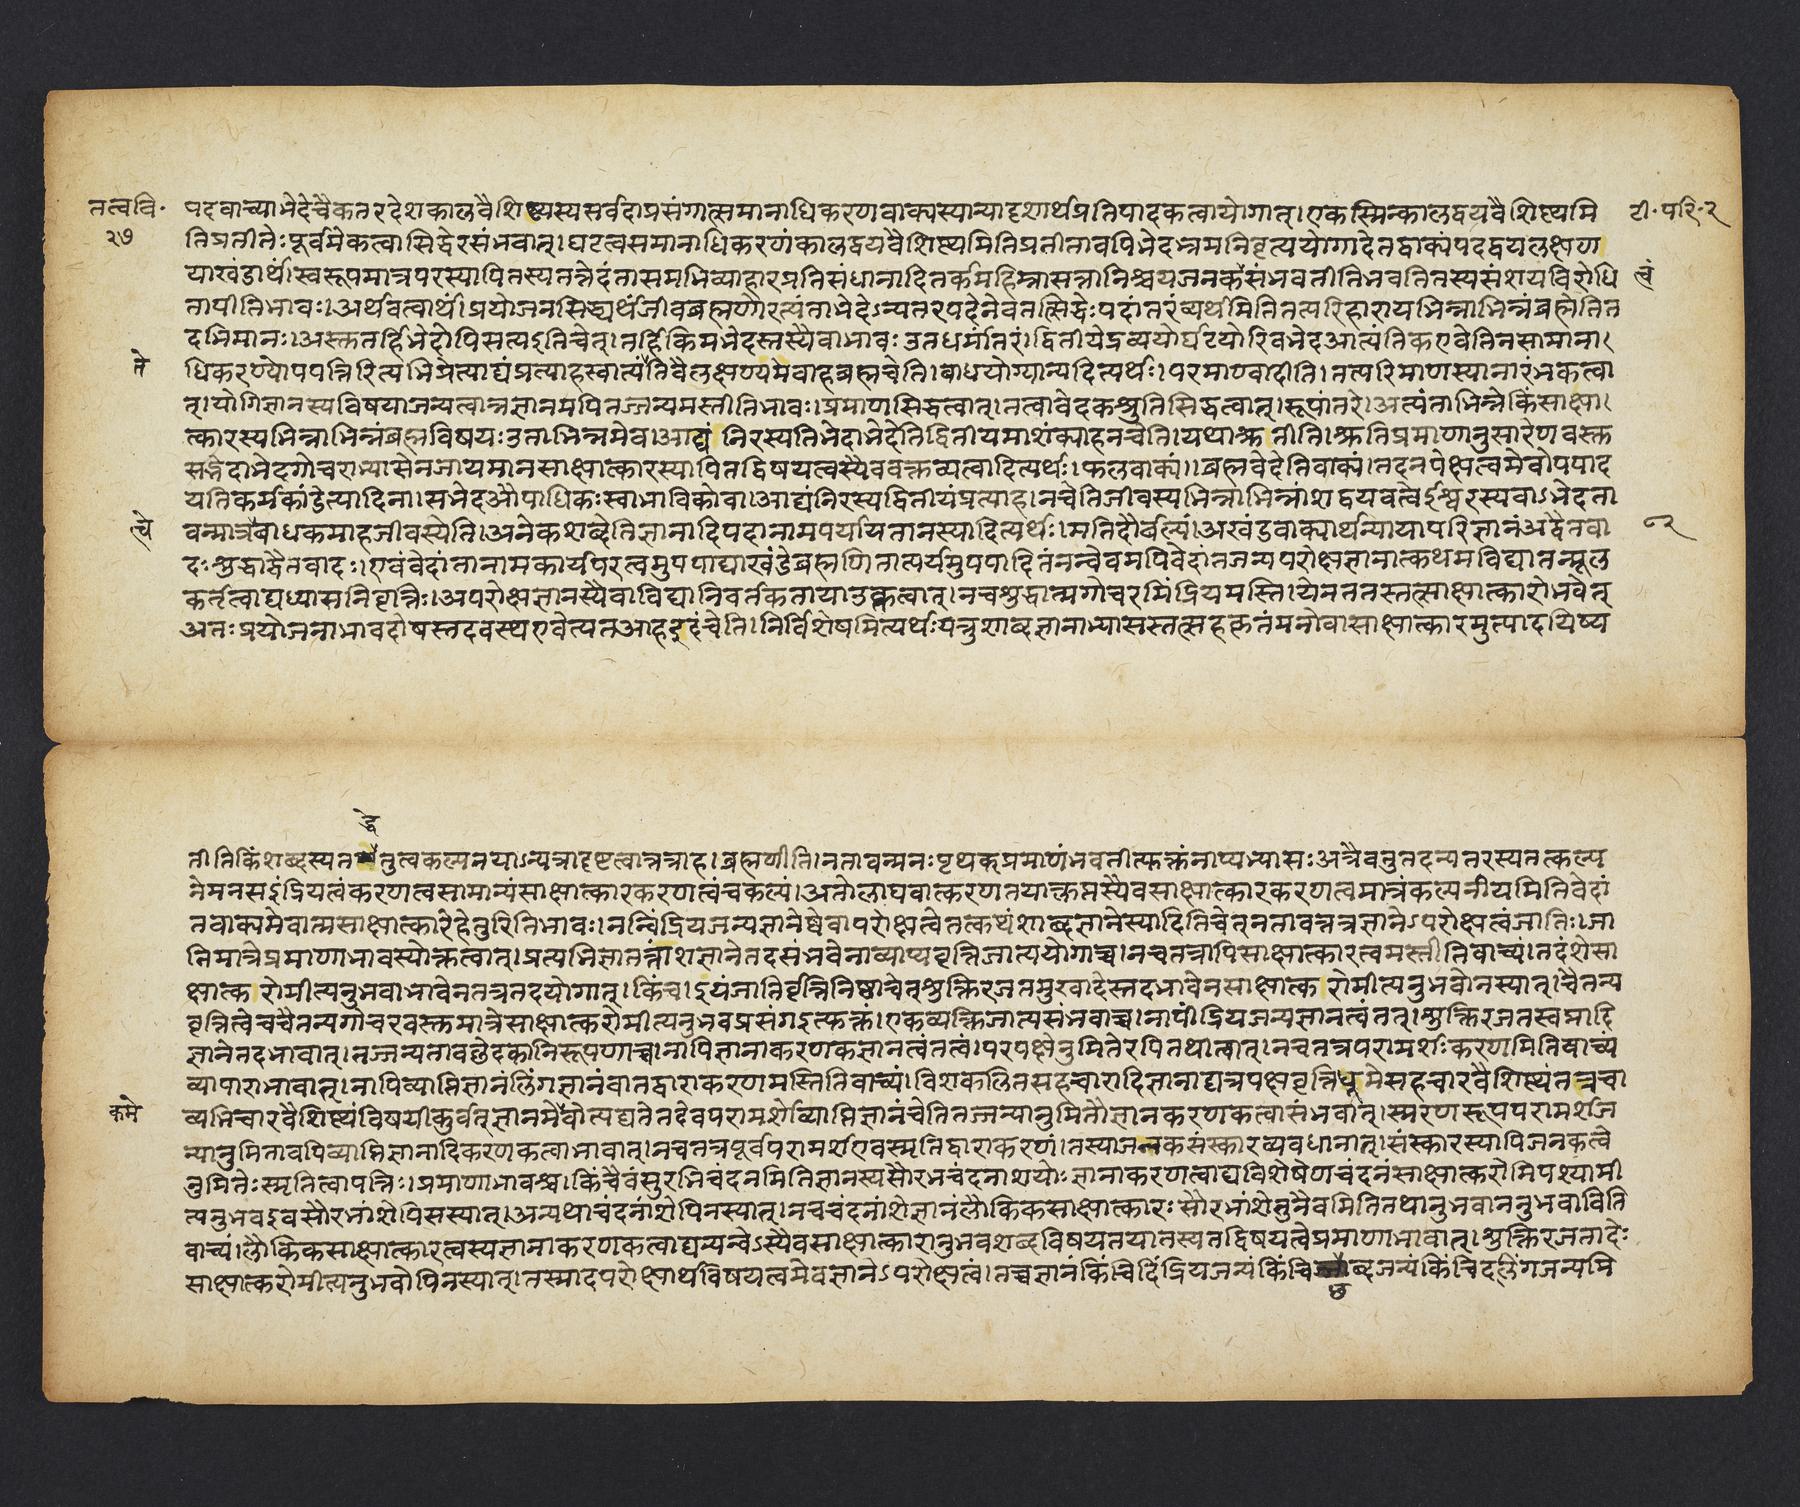 तत्ववि॰ पदवाच्याभेदेचैकतरदेशकालवैशिष्ट्यस्यसर्वदाप्रसंगात्समानाधिकरणवाक्यस्यान्यादृशार्थप्रतिपादकत्वायोगात्।एकस्मिन्कालद्वयवैशिष्ट्यमि टी॰परि॰२
२७ तिप्रतीतेःपूर्वमेकत्वासिद्धेरसंभवात्।घटत्वसमानाधिकरणंकालद्वयवैशिष्ट्यमितिप्रतीतावपिभेदभ्रमनिवृत्त्ययोगादेतद्वाक्यंपदद्वयलक्षण
याखंडार्थं।स्वरूपमात्रपरस्यापितस्यतत्तेदंतासमभिव्याहारप्रतिसंधानादितर्कमहिम्नासत्तानिश्चयजनकसंभवतीतिभवतितस्यसंशयविरोधि त्वं
तापीतिभावः।अर्थवत्वार्थं।प्रयोजनसिद्ध्यर्थंजीवब्रह्मणोरत्यंताभेदेऽन्यतरपदेनेवतत्सिद्धेःपदांतरंव्यर्थमितितत्परिहारायभिन्नाभिन्नंब्रह्मेतित
दभिमानः।अस्तुतर्हिभेदोपिसत्यइतिचेत्।तर्हिकिमभेदस्तस्यैवाभावःउतधर्मांतरं।द्वितीयेद्रव्ययोर्घटयोरिवभेदआत्यंतिकएवेतिनसामाना।
ते धिकरण्योपपत्तिरित्यभिप्रेत्याद्यंप्रत्याहस्वात्यंतिवैलक्षण्यमेवाहब्रह्मचेति।बाधयोग्यान्यदित्यर्थः।परमाण्वादीति।तत्परिमाणस्यानारंभकत्वा
त्।योगिज्ञानस्यविषयाजन्यत्वान्नज्ञानमपितज्जन्यमस्तीतिभावः।प्रमाणसिद्धत्वात्।तत्वावेदकश्रुतिसिद्धत्वात्।रूपांतरे।अत्यंताभिन्नेकिंसाक्षा।
त्कारस्यभिन्नाभिन्नंब्रह्मविषयःउताभिन्नमेव।आद्यं निरस्यतिभेदाभेदेतिद्वितीयमाशंक्याहनचेति।यथाश्रु तीति।श्रुतिप्रमाणानुसारेणवस्तु
सद्भेदाभेदगोचराभ्यासेनजायमानसाक्षात्कारस्यापितद्विषयत्वस्यैववक्तव्यत्वादित्यर्थः।फलवाक्यं।।ब्रह्मवेदेतिवाक्यं।तदनपेक्षत्वमेवोपपाद
यतिकर्मकांडेत्यादिना।सभेदऔपाधिकःस्वाभाविकोवा।आद्यंनिरस्यद्वितीयंप्रत्याह।नचेतिजीवस्यभिन्नाभिन्नांशद्वयवत्वेईश्वरस्यवाऽभेदता
त्वे वन्मात्रंबाधकमाहजीवस्येति।अनेकशब्देतिज्ञानादिपदानामपर्यायतानस्यादित्यर्थः।मतिदौर्बल्यं।अखंडवाक्यार्थन्यायापरिज्ञानंअद्वैतवा
दःशुद्धाद्वैतवादः।एवंवेदांतानामकार्यपरत्वमुपपाद्याखंडेब्रह्मणितात्पर्यमुपपादितंनन्वेवमपिवेदांतजन्यपरोक्षज्ञानात्कथमविद्यातन्मूल
कर्तृत्वाद्यध्यासनिवृत्तिः।अपरोक्षज्ञानस्यैवाविद्यानिवर्तकतायाउक्तत्वात्।नचशुद्धात्मगोचरमिंद्रियमस्ति।येनततस्तत्साक्षात्कारोभवेत्
अतःप्रयोजनाभावदोषस्तदवस्थएवेत्यतआहइदंचेति।निर्विशेषमित्यर्थःयत्तुशाब्दज्ञानाभ्यासस्तत्सहकृतंमनोवासाक्षात्कारमुत्पादयिष्य
तीतिकिंशब्दस्यत तुत्वकल्पनयाऽन्यत्रादृष्टत्वात्तत्राह।ब्रह्मणीति।नतावन्मनःपृथक्प्रमाणंभवतीत्युक्तंनाप्यभ्यासःअत्रैवतुतदन्यतरस्यतत्कल्प
नेमनसइंद्रियत्वंकरणत्वसामान्यंसाक्षात्कारकरणत्वंचकल्प्यं।अतोलाघवात्करणतयाक्लृप्तस्यैवसाक्षात्कारकरणत्वमात्रंकल्पनीयमितिवेदां
तवाक्यमेवात्मसाक्षात्कारेहेतुरितिभावः।नन्विंद्रियजन्यज्ञानेष्वेवापरोक्षत्वेतत्कथंशाब्दज्ञानेस्यादितिचेत्नतावत्तत्रज्ञानेऽपरोक्षत्वंजातिः।जा
तिमात्रेप्रमाणाभावस्योक्तत्वात्।प्रत्यभिज्ञातत्तांशज्ञानेतदसंभवेनाव्याप्यवृत्तिजात्ययोगाच्च।नचतत्रापिसाक्षात्कारत्वमस्तीतिवाच्यं।तदंशेसा
क्षात्क रोमीत्यनुभवाभावेनतत्रतदयोगात्।किंच।इयंजातिर्वृत्तिनिष्ठाचेत्शुक्तिरजतसुखादेस्तदभावेनसाक्षात्क रोमीत्यनुभवोनस्यात्।चैतन्य
वृत्तित्वेचचैतन्यगोचरवस्तुमात्रेसाक्षात्करोमीत्यनुभवप्रसंगइत्युक्तं।एकव्यक्तिजात्यसंभवाच्च।नापींद्रियजन्यज्ञानत्वंतत्।शुक्तिरजतस्वप्नादि
ज्ञानेतदभावात्।तज्जन्यतावच्छेदकानिरूपणाच्च।नापिज्ञानाकरणकज्ञानत्वंतत्वं।परपक्षेनुमितेरपितथात्वात्।नचतत्रपरामर्शःकरणमितिवाच्यं
व्यापाराभावात्।नापिव्याप्तिज्ञानंलिंगज्ञानंवातद्वाराकरणमस्तितिवाच्यं।विशकलितसहचारादिज्ञानाद्यत्रपक्षवृत्तिधूमेसहचारवैशिष्ट्यंतत्रचा
क्रमे व्यभिचारवैशिष्ट्यंविषयीकुर्वत्ज्ञानमेवोत्पद्यतेतदेवपरामर्शोव्याप्तिज्ञानंचेतितज्जन्यानुमितौज्ञानकरणकत्वासंभवात्।स्मरणरूपपरामर्शज
न्यानुमितावपिव्याप्तिज्ञानादिकरणकत्वाभावात्।नचतत्रपूर्वपरामर्शएवस्मृतिद्वाराकरणं।तस्याजनकसंस्कारव्यवधानात्।संस्कारस्यापिजनकत्वे
नुमितेःस्मृतित्वापत्तिः।प्रमाणाभावश्च।किंचैवंसुरभिचंदनमितिज्ञानस्यसौरभचंदनांशयोःज्ञानाकरणत्वाद्यविशेषेणचंदनंसाक्षात्करोमिपश्यामी
त्यनुभवइवसौरभांशेपिसस्यात्।अन्यथाचंदनांशेपिनस्यात्।नचचंदनांशेज्ञानंलौकिकसाक्षात्कारःसौरभांशेतुनैवमितितथानुभवाननुभवावितिति
वाच्यं।लौकिकसाक्षात्कारत्वस्यज्ञानाकरणकत्वाद्यन्यत्वेऽस्यैवसाक्षात्कारानुभवशब्दविषयतयातस्यतद्विषयत्वेप्रमाणाभावात्।शुक्तिरजतादेः
साक्षात्करोमीत्यनुभवोपिनस्यात्।तस्मादपरोक्षार्थविषयत्वमेवज्ञानेऽपरोक्षत्वं।तच्चज्ञानंकिंचिदिंद्रियजन्यंकिंचि ब्दजन्यंकिंचिदलिंगजन्यमि